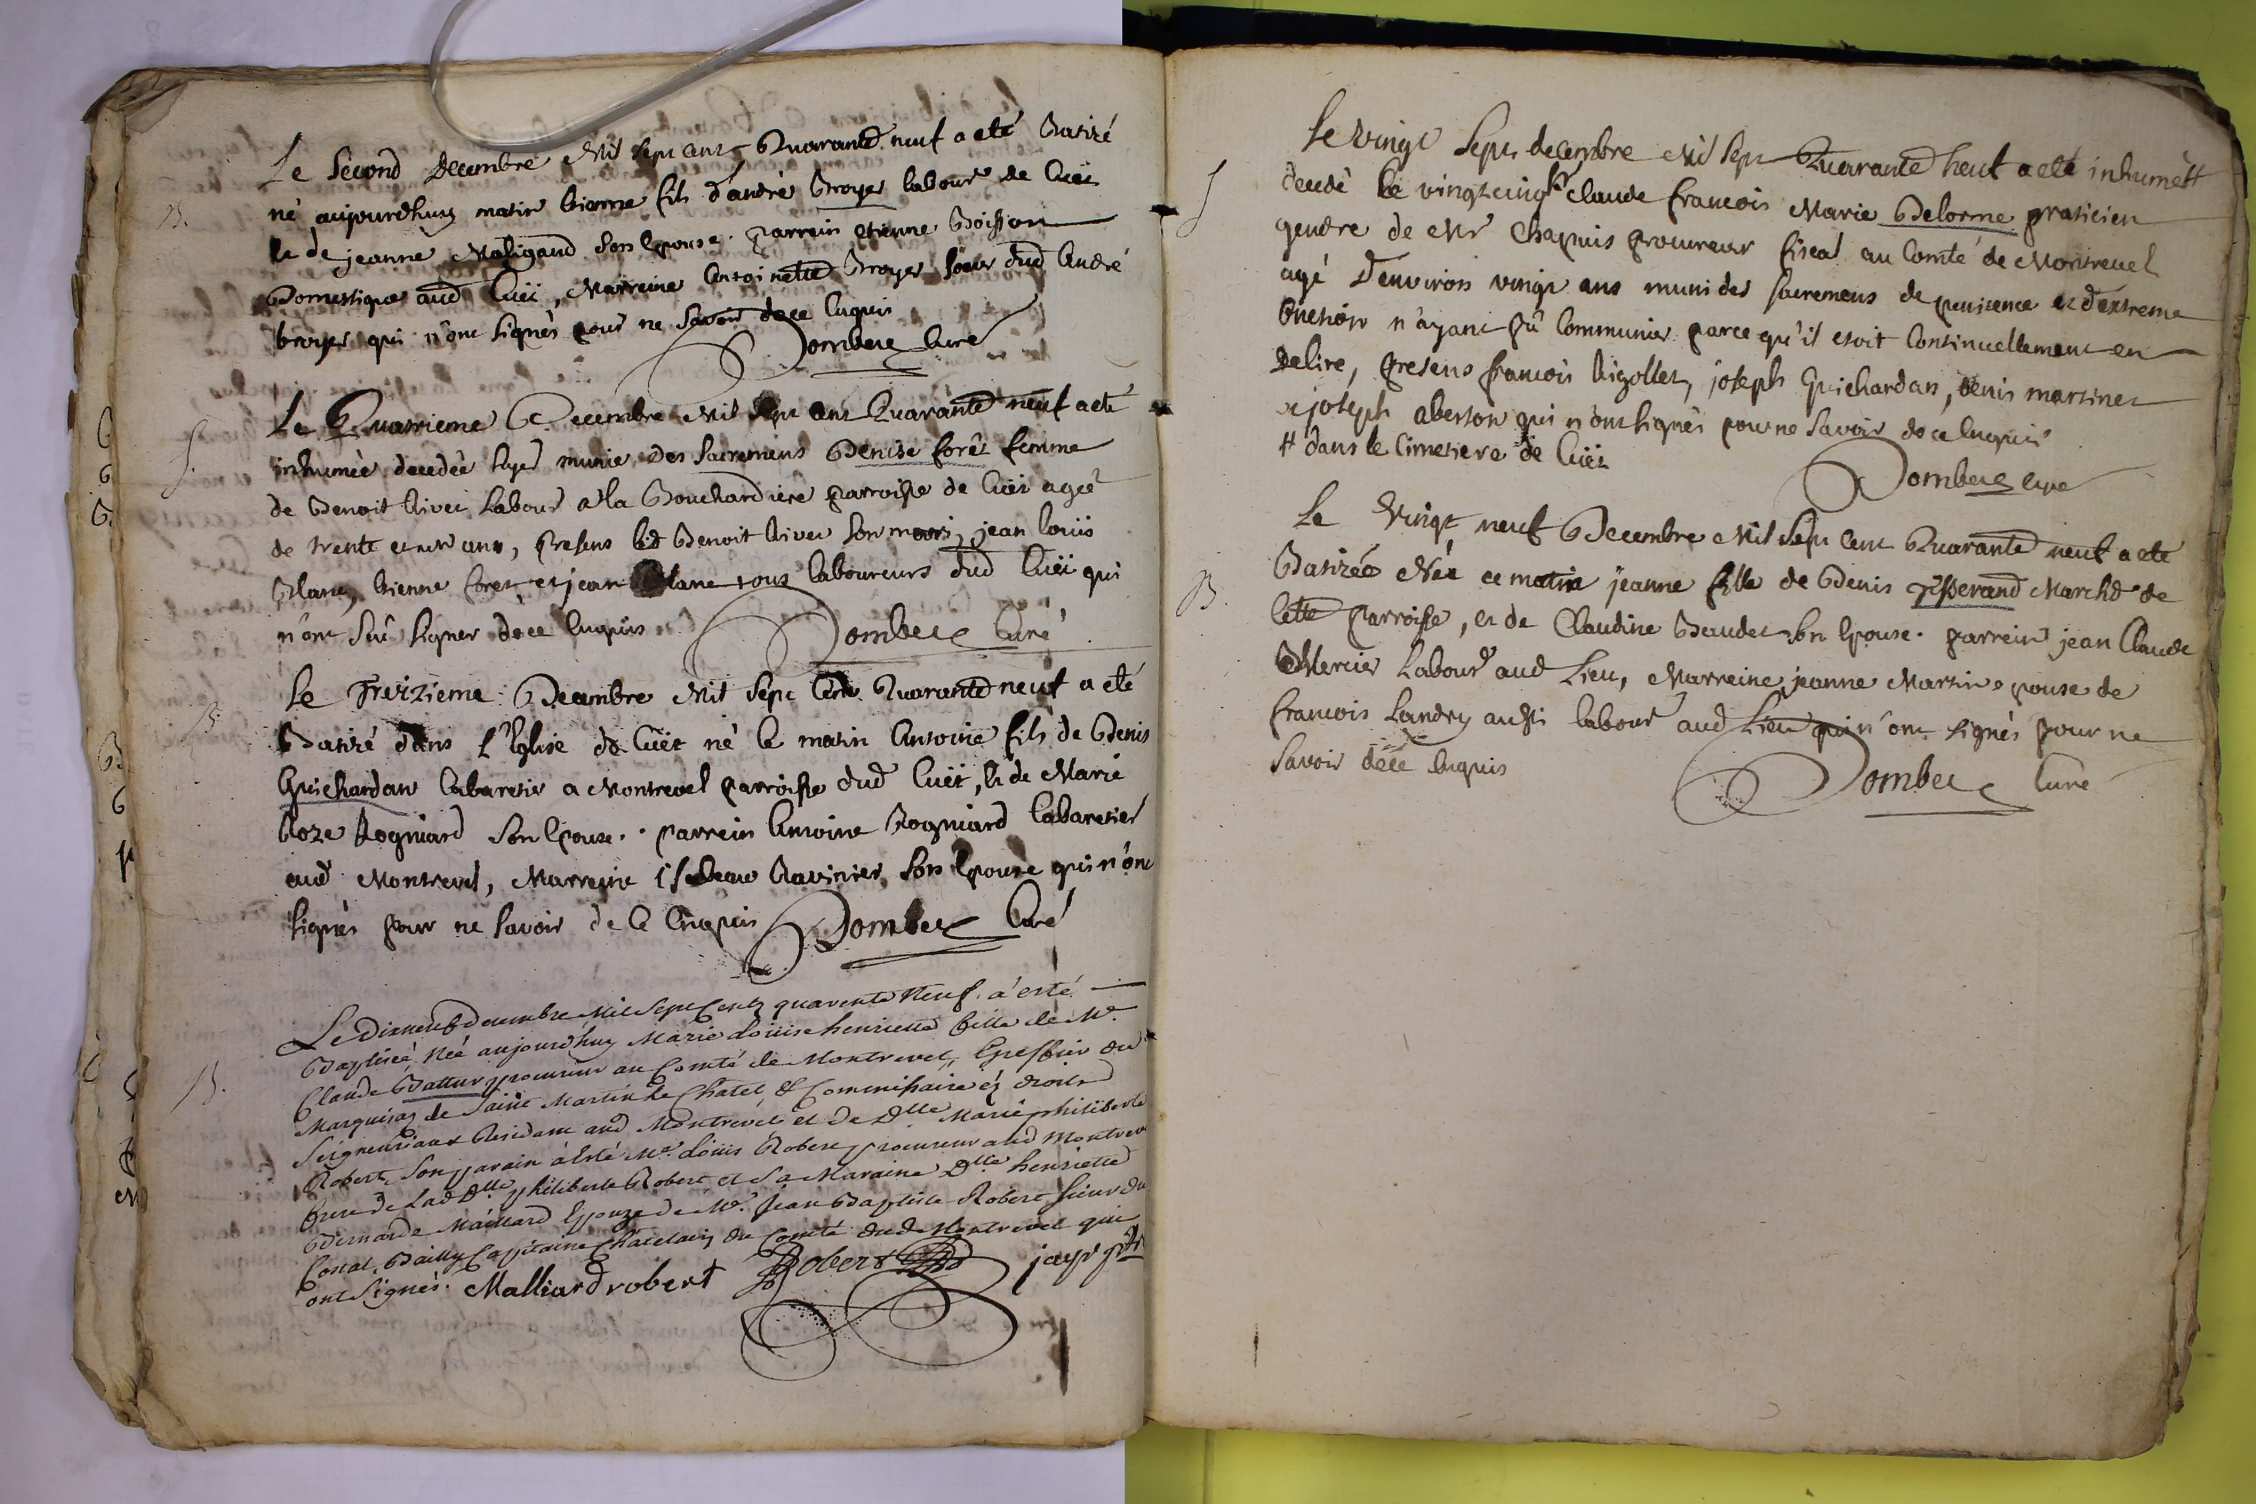 Le Second Decembre Mil sept cent Quarante neuf a eté Batizé
B. né aujourdhuy matin Etienne fils d'andré Broyer labour de Cuët
et de jeanne Maligand son Epouse. parrein etienne Boisson
Domestique aud Cuët, Marreine Antoinette Broyer soeur dud André
broyer qui n'ont signés pour ne savoir de ce Enquis
Dombee Curé
Le Quatrieme Decembre Mil sept cent Quarante neuf a eté
S. inhumée decedée hyer munie des sacremens Denise forêt femme
de Benoit Livet Labour a la Bouchardiere parroisse de Cuët agée
de trente et ans, presens led Benoit Livet son mari, jean louis
Blanc, Etienne foret et jean Blanc tous laboureurs dud Cuët qui
n'ont sçu signer de ce Enquis Dombee Curé
Le Treizieme Decembre Mil sept Cent Quarante neuf a eté
B. Batizé dans L'Eglise de Cuët né le matin Antoine fils de Denis
Guichardan Cabaretier a Montrevel parroisse dud Cuët, et de Marie
Roze Rogniard son Epouse. parrein Antoine Rogniard Cabaretier
aud Montrevel, Marreine isabeau Ravinier son Epouse qui n'ont
signés pour ne savoir de ce Enquis Dombee Curé
Le Dixneuf decembre Mil Sept Cents quarente Neuf a'esté
Baptiséé Néé aujourd'huy Marie Loüise henriette fille de Me.
Claude Battur procureur au Comté de Montrevel, Greffier du
B. Marquisaz de Saint Martin le Chatel & Commissaire éz droits
Seigneuriaux Residant aud Montrevel et de Dlle Marie philiberte
Robert, Son parain à Esté Me Loüis Robert procureur aud Montrevel
frere de Lad Dlle philiberte Robert et Sa Maraine Dlle henriette
Bernarde Maillard Epouze de Me. Jean Baptiste Robert sieur du
Costal, Bailly Capitaine Chatelain du Comté dud Montrevel qui
ont Signés. Malliard robert Robert
Le vingt Sept decembre Mil sept Quarante neuf a eté inhumé #
S decedé le vingtcinq Claude francois Marie Delorme praticien
gendre de Mr Chapuis procureur fiscal au Comté de Montrevel
agé D'environ vingt ans muni des sacremens de penitence et d'extreme
Onction n'ayant pû Communier parce qu'il etoit Continuellement en
Delire, presens francois Rigollet, joseph Guichardan, denis martinet
et joseph aberton qui n'ont signés pour ne savoir de ce Enquis
# dans le Cimetiere de Cuët
Dombee Curé
Le Vingt neuf Decembre Mil Sept Cent Quarante neuf a eté
B. Batizée Née ce matin jeanne fille de Denis Tisserand Marchd de
Cette parroisse, et de Claudine Beaudet son Epouse. parrein jean Claude
Mercier Labour aud Lieu, Marreine jeanne Martin epouse de
francois Landry aussi labour aud Lieu qui n'ont signés pour ne
savoir dece Enquis Dombee Curé